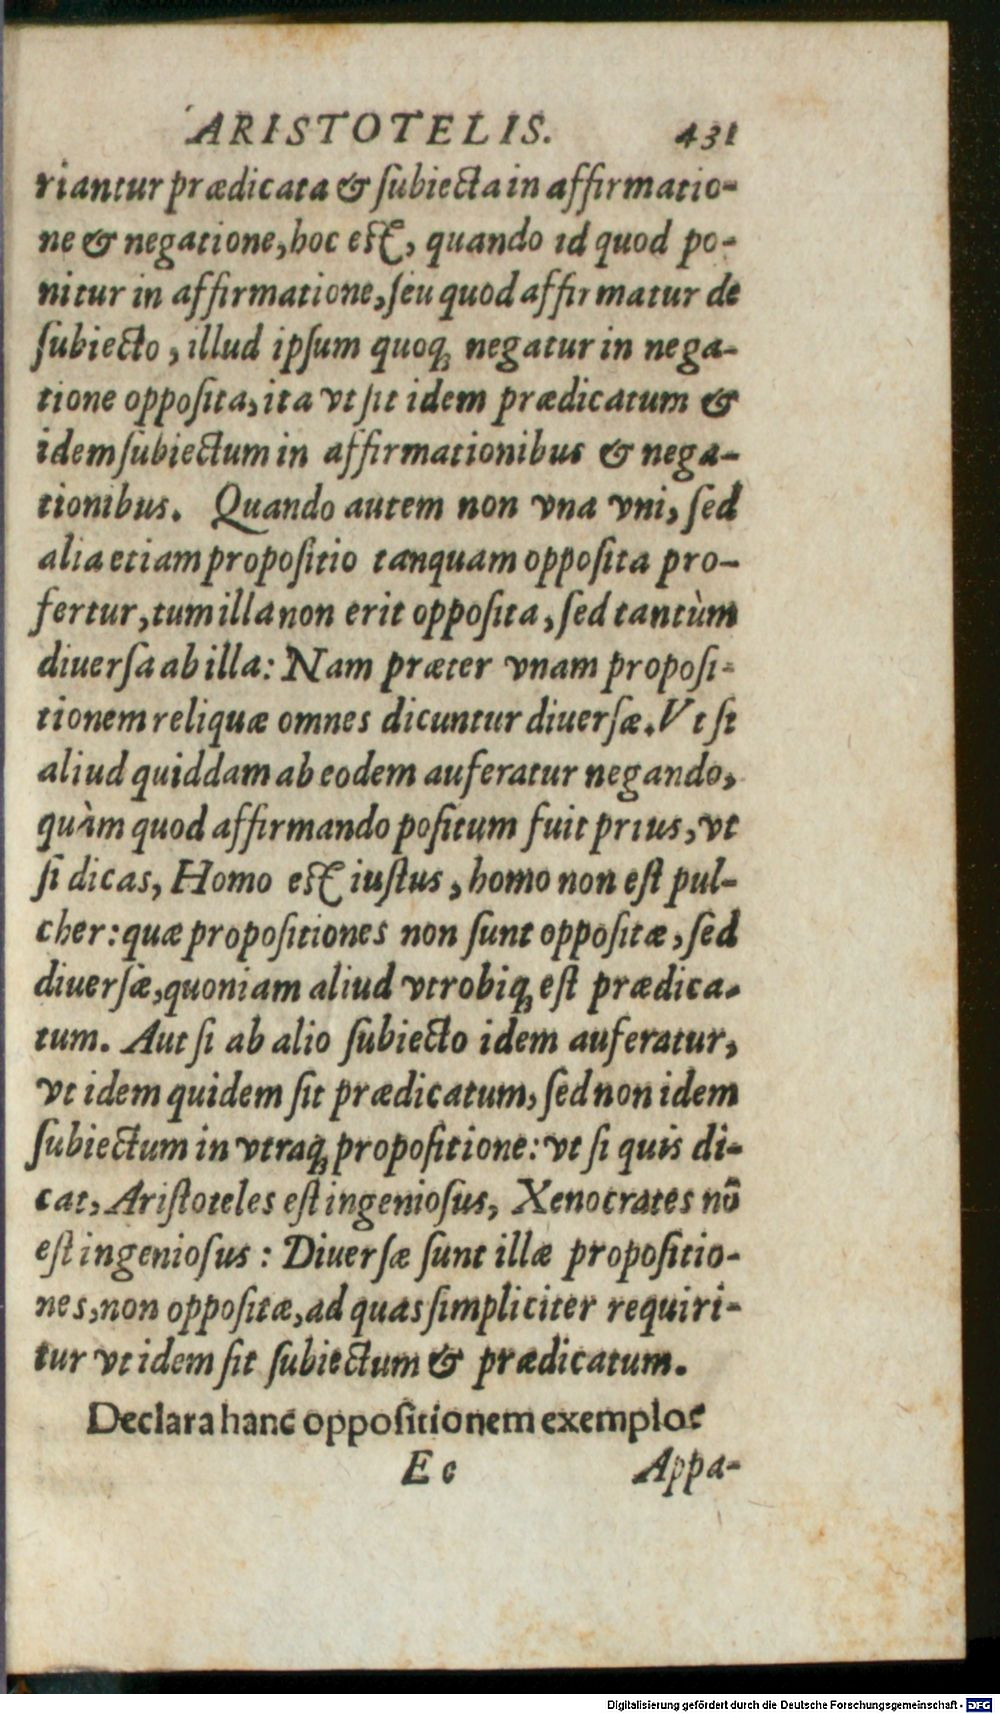 ARISTOTELIS. 431
riantur prædicata & ſubiecta in affirmatio-
ne & negatione, hoc eſt, quando id quod po-
nitur in affirmatione, ſeu quod affirmatur de
ſubiecto, illud ipſum quoq; negatur in nega-
tione oppoſita, ita vt ſit idem prædicatum &
idem ſubiectum in affirmationibus & nega-
tionibus. Quando autem non vna vni, ſed
alia etiam propoſitio tanquam oppoſita pro-
fertur, tum illa non erit oppoſita, ſed tantùm
diuerſa ab illa: Nam præter vnam propoſi-
tionem reliquæ omnes dicuntur diuerſæ. Vt ſi
aliud quiddam ab eodem auferatur negando,
quàm quod affirmando poſitum fuit prius, vt
ſi dicas, Homo eſt iuſtus, homo non eſt pul-
cher: quæ propoſitiones non ſunt oppoſitæ, ſed
diuerſæ, quoniam aliud vtrobiq; eſt prædica-
tum. Aut ſi ab alio ſubiecto idem auferatur,
vt idem quidem ſit prædicatum, ſed non idem
ſubiectum in vtraq; propoſitione: vt ſi quis di-
cat, Ariſtoteles eſt ingenioſus, Xenocrates nō
eſt ingenioſus: Diuerſæ ſunt illæ propoſitio-
nes, non oppoſitæ, ad quas ſimpliciter requiri-
tur vt idem ſit ſubiectum & prædicatum.
Declara hanc oppoſitionem exemplo?
E e Appa-
Digitalisierung gefördert durch die Deutsche Forschungsgemeinschaft - DFG